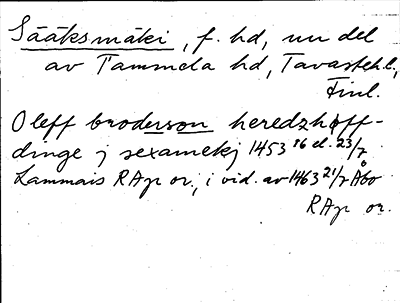 Sääksmäki, f. hd, nu del
av Tammela hd, Tavastehl.,
Finl.
Oleff broderson heredzhoff-
dinge j sexamekj 1453 16 el. 23/7
Lammais RAp or., i vid. av 1463 21/7 Åbo
RAp or.